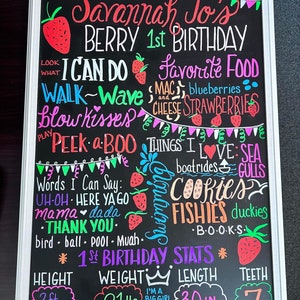 Savannah Jo's
BERRY 1st BIRTHDAY
LOOK WHAT I CAN DO
favorite FOOD
WALK ~ Wave
MAC and CHEESE
blueberries
STRAWBERRIES
blow kisses
PLAY PEEK-a-BOO
THINGS I L♥VE:
SEA GULLS
boatrides
Words I Can Say:
UH-OH · HERE YA GO
mama ♥ dada
THANK YOU
bird · ball · pool · muah
COOKIES
FISHIES
duckies
· B·O·O·K·S ·
1st BIRTHDAY STATS
HEIGHT
WEIGHT
LENGTH
TEETH
I'M A
BIG GIRL
7